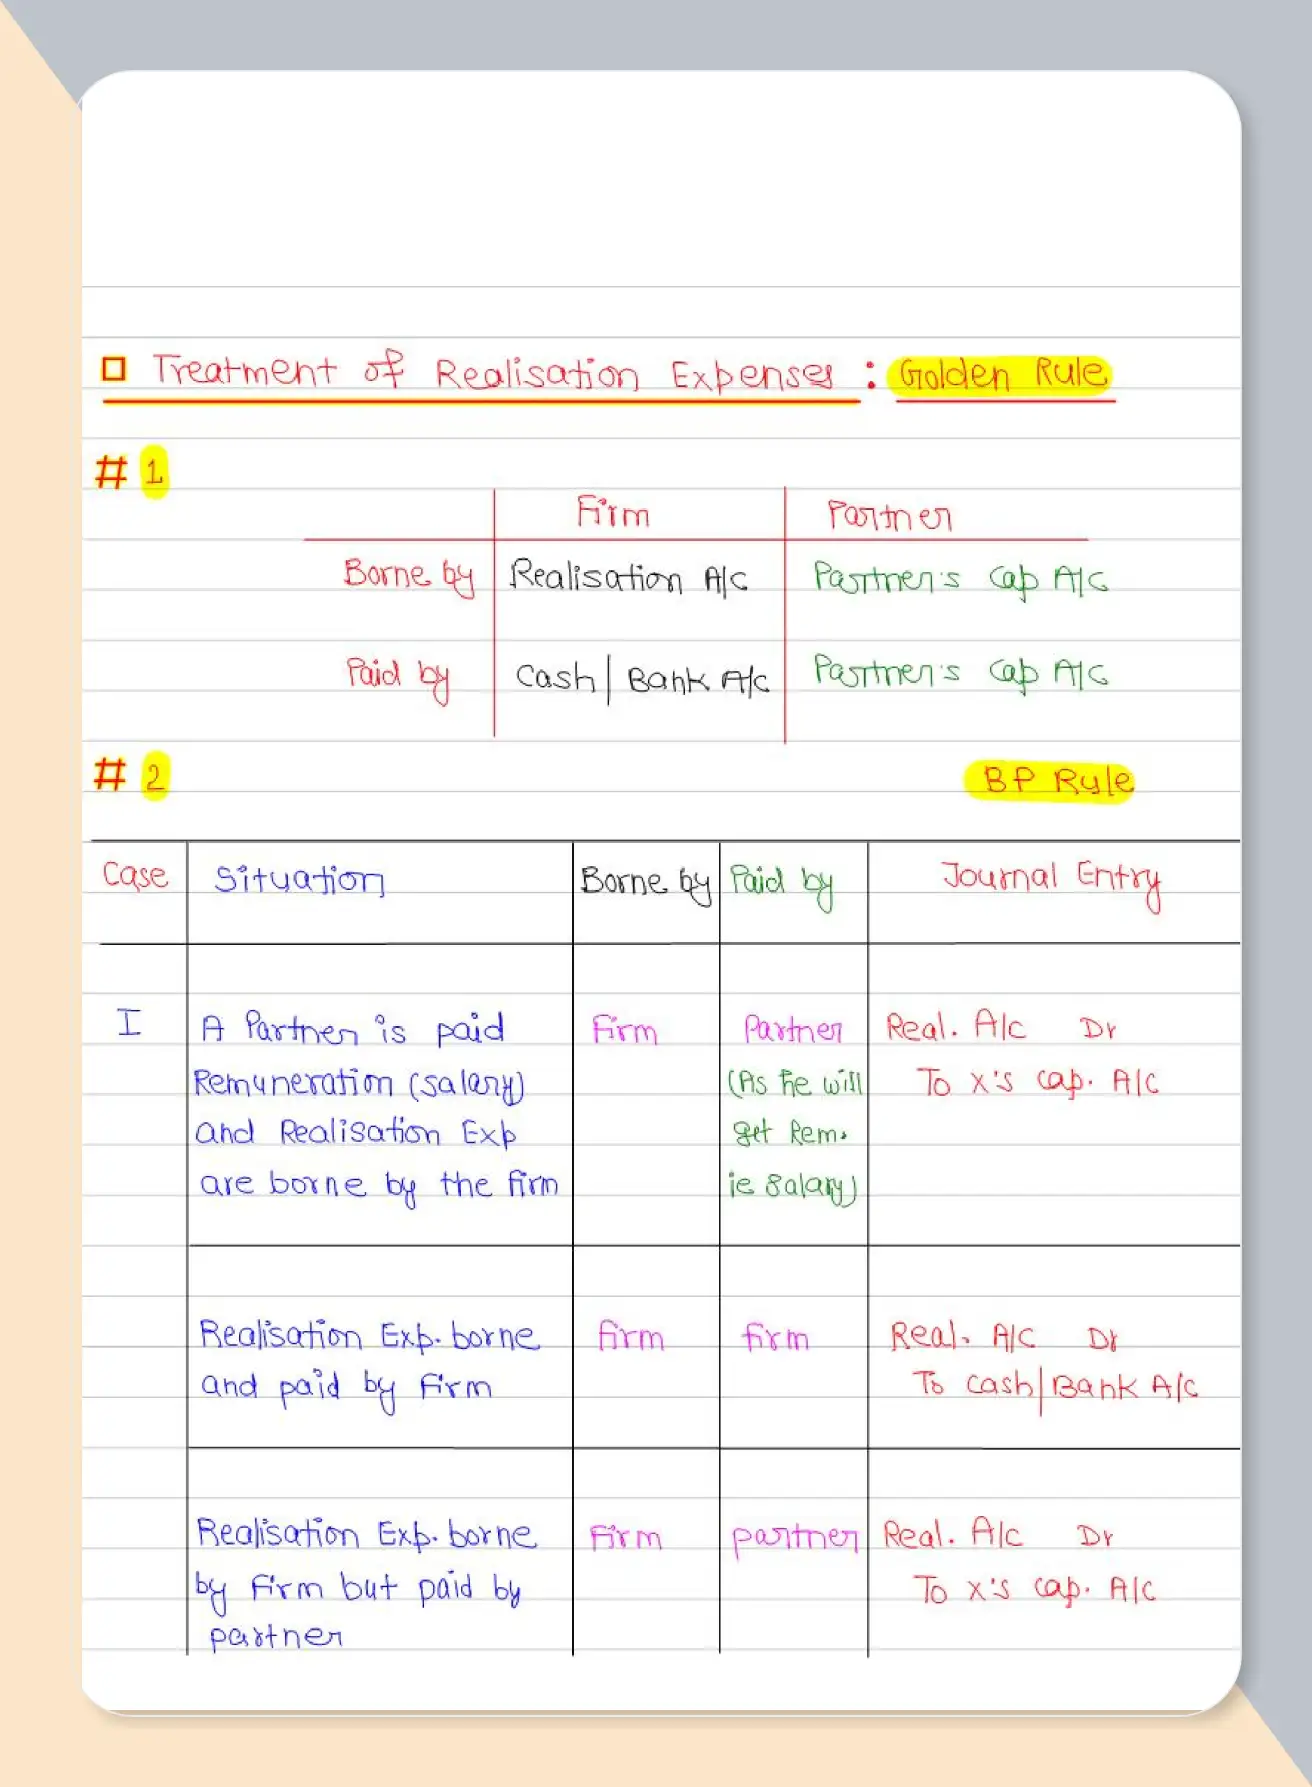 Treatment of Realisation Expenses : Golden Rule
# 1
Firm Partner
Borne by Realisation A/c Partner's Cap A/c
Paid by Cash/Bank A/c Partner's Cap A/c
# 2 BP Rule
Case Situation Borne by Paid by Journal Entry
I A Partner is paid Firm Partner Real. A/c Dr
Remuneration (salary) (As he will To X's Cap. A/c
and Realisation Exp get Rem.
are borne by the firm ie Salary)
Realisation Exp. borne firm firm Real. A/c Dr
and paid by Firm To Cash/Bank A/c
Realisation Exp. borne Firm partner Real. A/c Dr
by Firm but paid by To X's Cap. A/c
partner